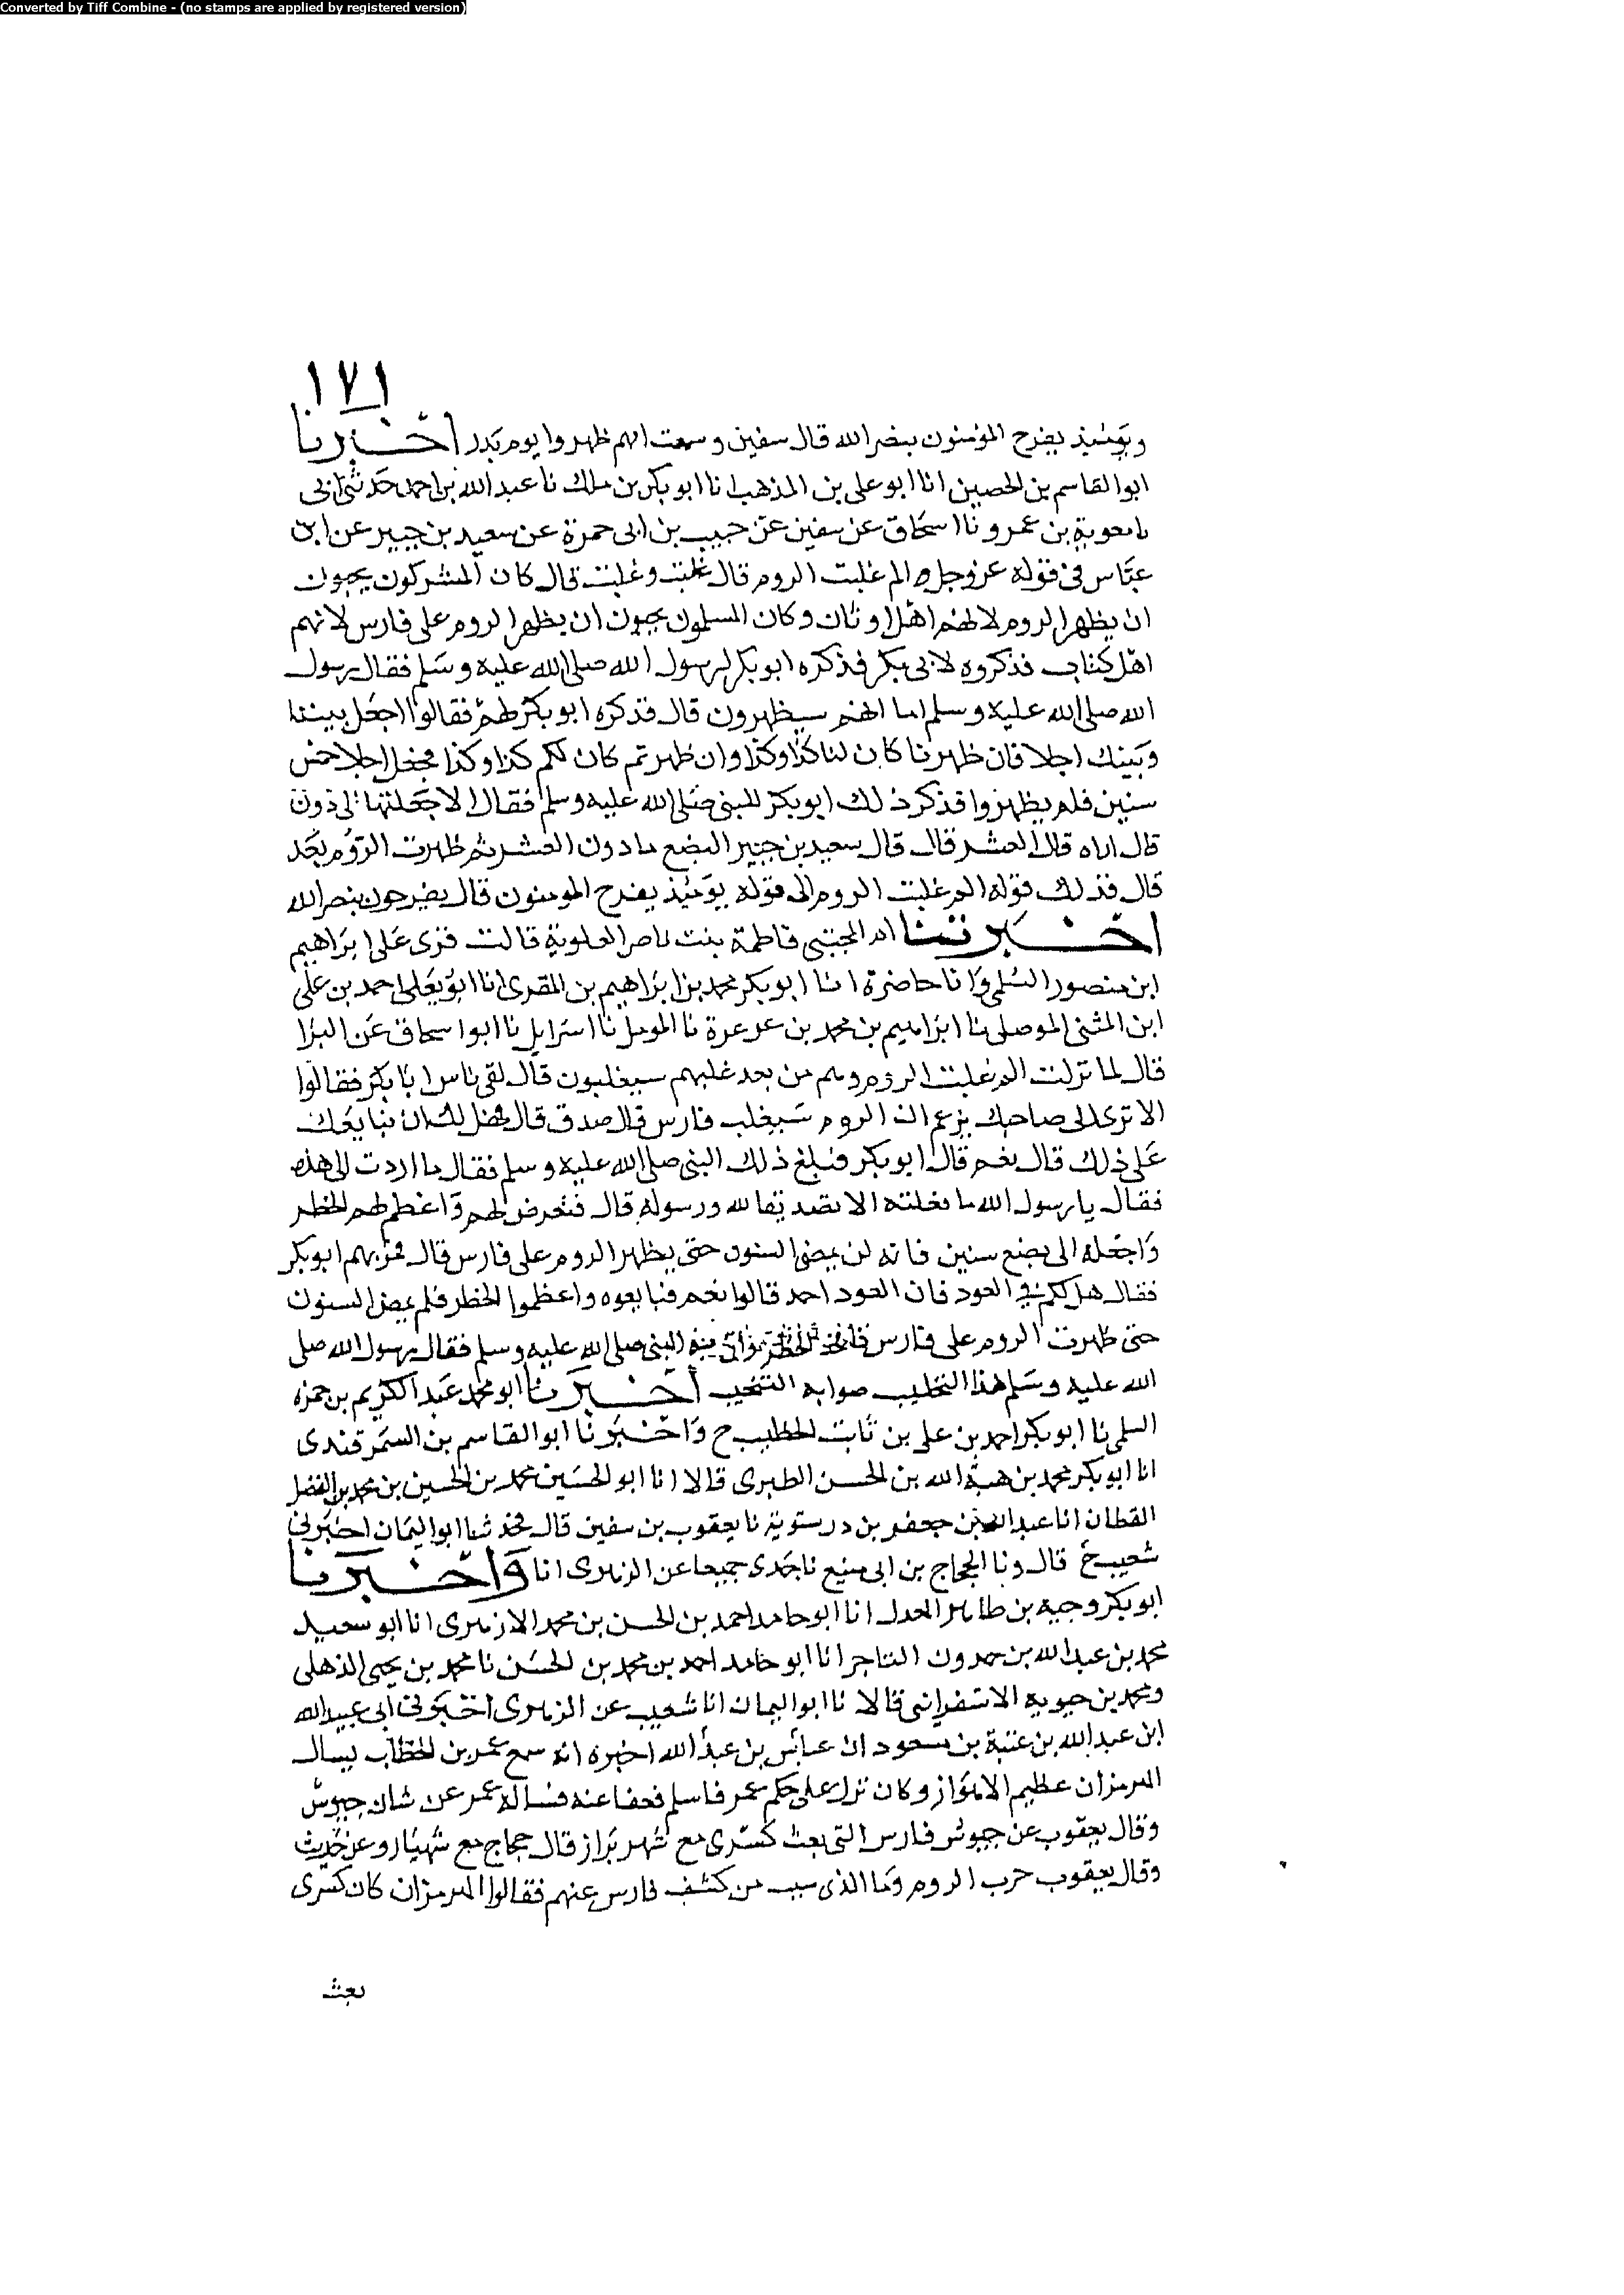 Converted by Tiff Combine - (no stamps are applied by registered version)
١٧١
ويومئذ يفرح المؤمنون بنصر الله قال سفين وسمعت انهم ظهروا يوم بدر اخبرنا
ابو القاسم بن الحصين انا ابو علي بن المذهب انا ابو بكر بن ملك نا عبد الله بن احمد حدثني ابي
نا معوية بن عمرو نا ابو اسحاق عن سفين عن حبيب بن ابي حمزة عن سعيد بن جبير عن ابن
عباس في قوله عز وجل الم غلبت الروم قال غلبت وغلبت قال كان المشركون يحبون
ان يظهر الروم لانهم اهل اوثان وكان المسلمون يحبون ان يظهر الروم على فارس لانهم
اهل كتاب فذكروه لابي بكر فذكره ابو بكر لرسول الله صلى الله عليه وسلم فقال رسول
الله صلى الله عليه وسلم اما انهم سيظهرون قال فذكره ابو بكر لهم فقالوا اجعل بيننا
وبينك اجلا فان ظهرنا كان لنا كذا وكذا وان ظهرتم كان لكم كذا وكذا فجعل اجلا خمس
سنين فلم يظهروا فذكر ذلك ابو بكر للنبي صلى الله عليه وسلم فقال الا جعلتها الى دون
قال اراه قال العشر قال قال سعيد بن جبير البضع ما دون العشر ثم ظهرت الروم بعد
قال فذلك قوله الم غلبت الروم الى قوله يومئذ يفرح المومنون قال يفرحون بنصر الله
اخبرتنا ام المجتبى فاطمة بنت ناصر العلوية قالت قرى على ابراهيم
ابن منصور السلمي وانا حاضرة انا ابو بكر محمد بن ابراهيم بن المقرى انا ابو يعلى احمد بن علي
ابن المثنى الموصلي نا ابراهيم بن محمد بن عرعرة نا المومل نا اسرايل نا ابوا سحاق عن البرا
قال لما نزلت الم غلبت الروم وهم من بعد غلبهم سيغلبون قال لقي ناس ابا بكر فقالوا
الا ترى الى صاحبك يزعم ان الروم سيغلب فارس قال صدق قال فهل لك ان نبايعك
على ذلك قال نعم قال ابو بكر فبلغ ذلك النبي صلى الله عليه وسلم فقال ما اردت الى هذه
فقال يا رسول الله ما فعلته الا تصديقا لله ورسوله قال فتعرض لهم واعظم لهم الخطر
واجعله الى بضع سنين فانه لن يمضى السنون حتى يظهر الروم على فارس قال فمر بهم ابو بكر
فقال هل لكم في العود فان العود احمد قالوا نعم فبايعوه واعظموا الخطر فلم يمض السنون
حتى ظهرت الروم على فارس فاخذ الخطر واتى به النبي صلى الله عليه وسلم فقال رسول الله صلى
الله عليه وسلم هذا التخليب صوابه النخيب اخبرنا ابو محمد عبد الكريم بن حمزه
السلمي نا ابو بكر احمد بن علي بن ثابت الخطيب ح واخبرنا ابو القاسم بن السمرقندى
انا ابو بكر محمد بن هبة الله بن الحسن الطبرى قالا انا ابو الحسين محمد بن الحسين بن محمد بن الفضل
القطان انا عبد الله بن جعفر بن درستوية نا يعقوب بن سفين قال فحدثنا ابو اليمان اخبرني
شعيب ح قال ونا الحجاج بن ابي منيع نا جدى جميعا عن الزهرى انا واخبرنا
ابو بكر وجيه بن طاهر العدل انا ابو حامد احمد بن الحسن بن محمد الازهرى انا ابو سعيد
محمد بن عبد الله بن حمدون التاجر انا ابو حامد احمد بن محمد بن الحسن نا محمد بن يحيى الذهلي
ومحمد بن حيويه الاسفرايني قالا نا ابو اليمان انا شعيب عن الزهرى اخبرني ابي عبيد الله
ابن عبد الله بن عتبة بن مسعود ان عباس بن عبد الله اخبره انه سمع عمر بن الخطاب يسال
الهرمزان عظيم الاهواز وكان نزل على حكم عمر فاسلم فعفا عنه فساله عمر عن شان جيوش
وقال يعقوب عن جيوش فارس التي بعث كسرى مع شهر براز قال حجاج مع شهيار وعن حديث
وقال يعقوب حرب الروم وما الذى سبب من كشف فارس عنهم فقالوا الهرمزان كان كسرى
بعث